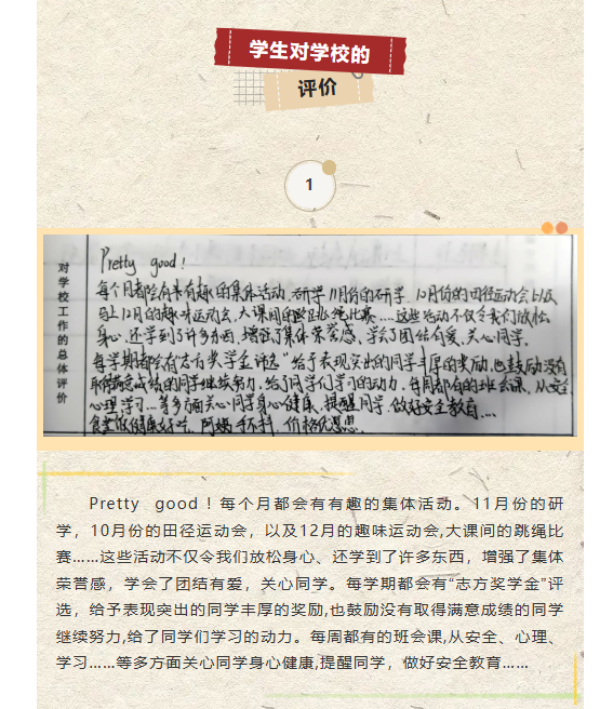 学生对学校的
评价
1
对学校工作的总体评价
Pretty good！
每个月都会有有趣的集体活动，研学11月份的研学，10月份的田径运动会以及
马上12月的趣味运动会，大课间的跳绳比赛……这些活动不仅令我们放松
身心，还学到了许多东西，增强了集体荣誉感，学会了团结有爱，关心同学。
每学期都会有志方奖学金评选"给予表现突出的同学丰厚的奖励，也鼓励没有
取得满意成绩的同学继续努力，给了同学们学习的动力，每周都有的班会课，从安全
心理学习…等多方面关心同学身心健康，提醒同学，做好安全教育…
食堂饭健康好吃，阿姨手不抖，价格优惠
Pretty good！每个月都会有有趣的集体活动。11月份的研
学，10月份的田径运动会，以及12月的趣味运动会,大课间的跳绳比
赛……这些活动不仅令我们放松身心、还学到了许多东西，增强了集体
荣誉感，学会了团结有爱，关心同学。每学期都会有“志方奖学金”评
选，给予表现突出的同学丰厚的奖励,也鼓励没有取得满意成绩的同学
继续努力,给了同学们学习的动力。每周都有的班会课,从安全、心理、
学习……等多方面关心同学身心健康,提醒同学，做好安全教育……